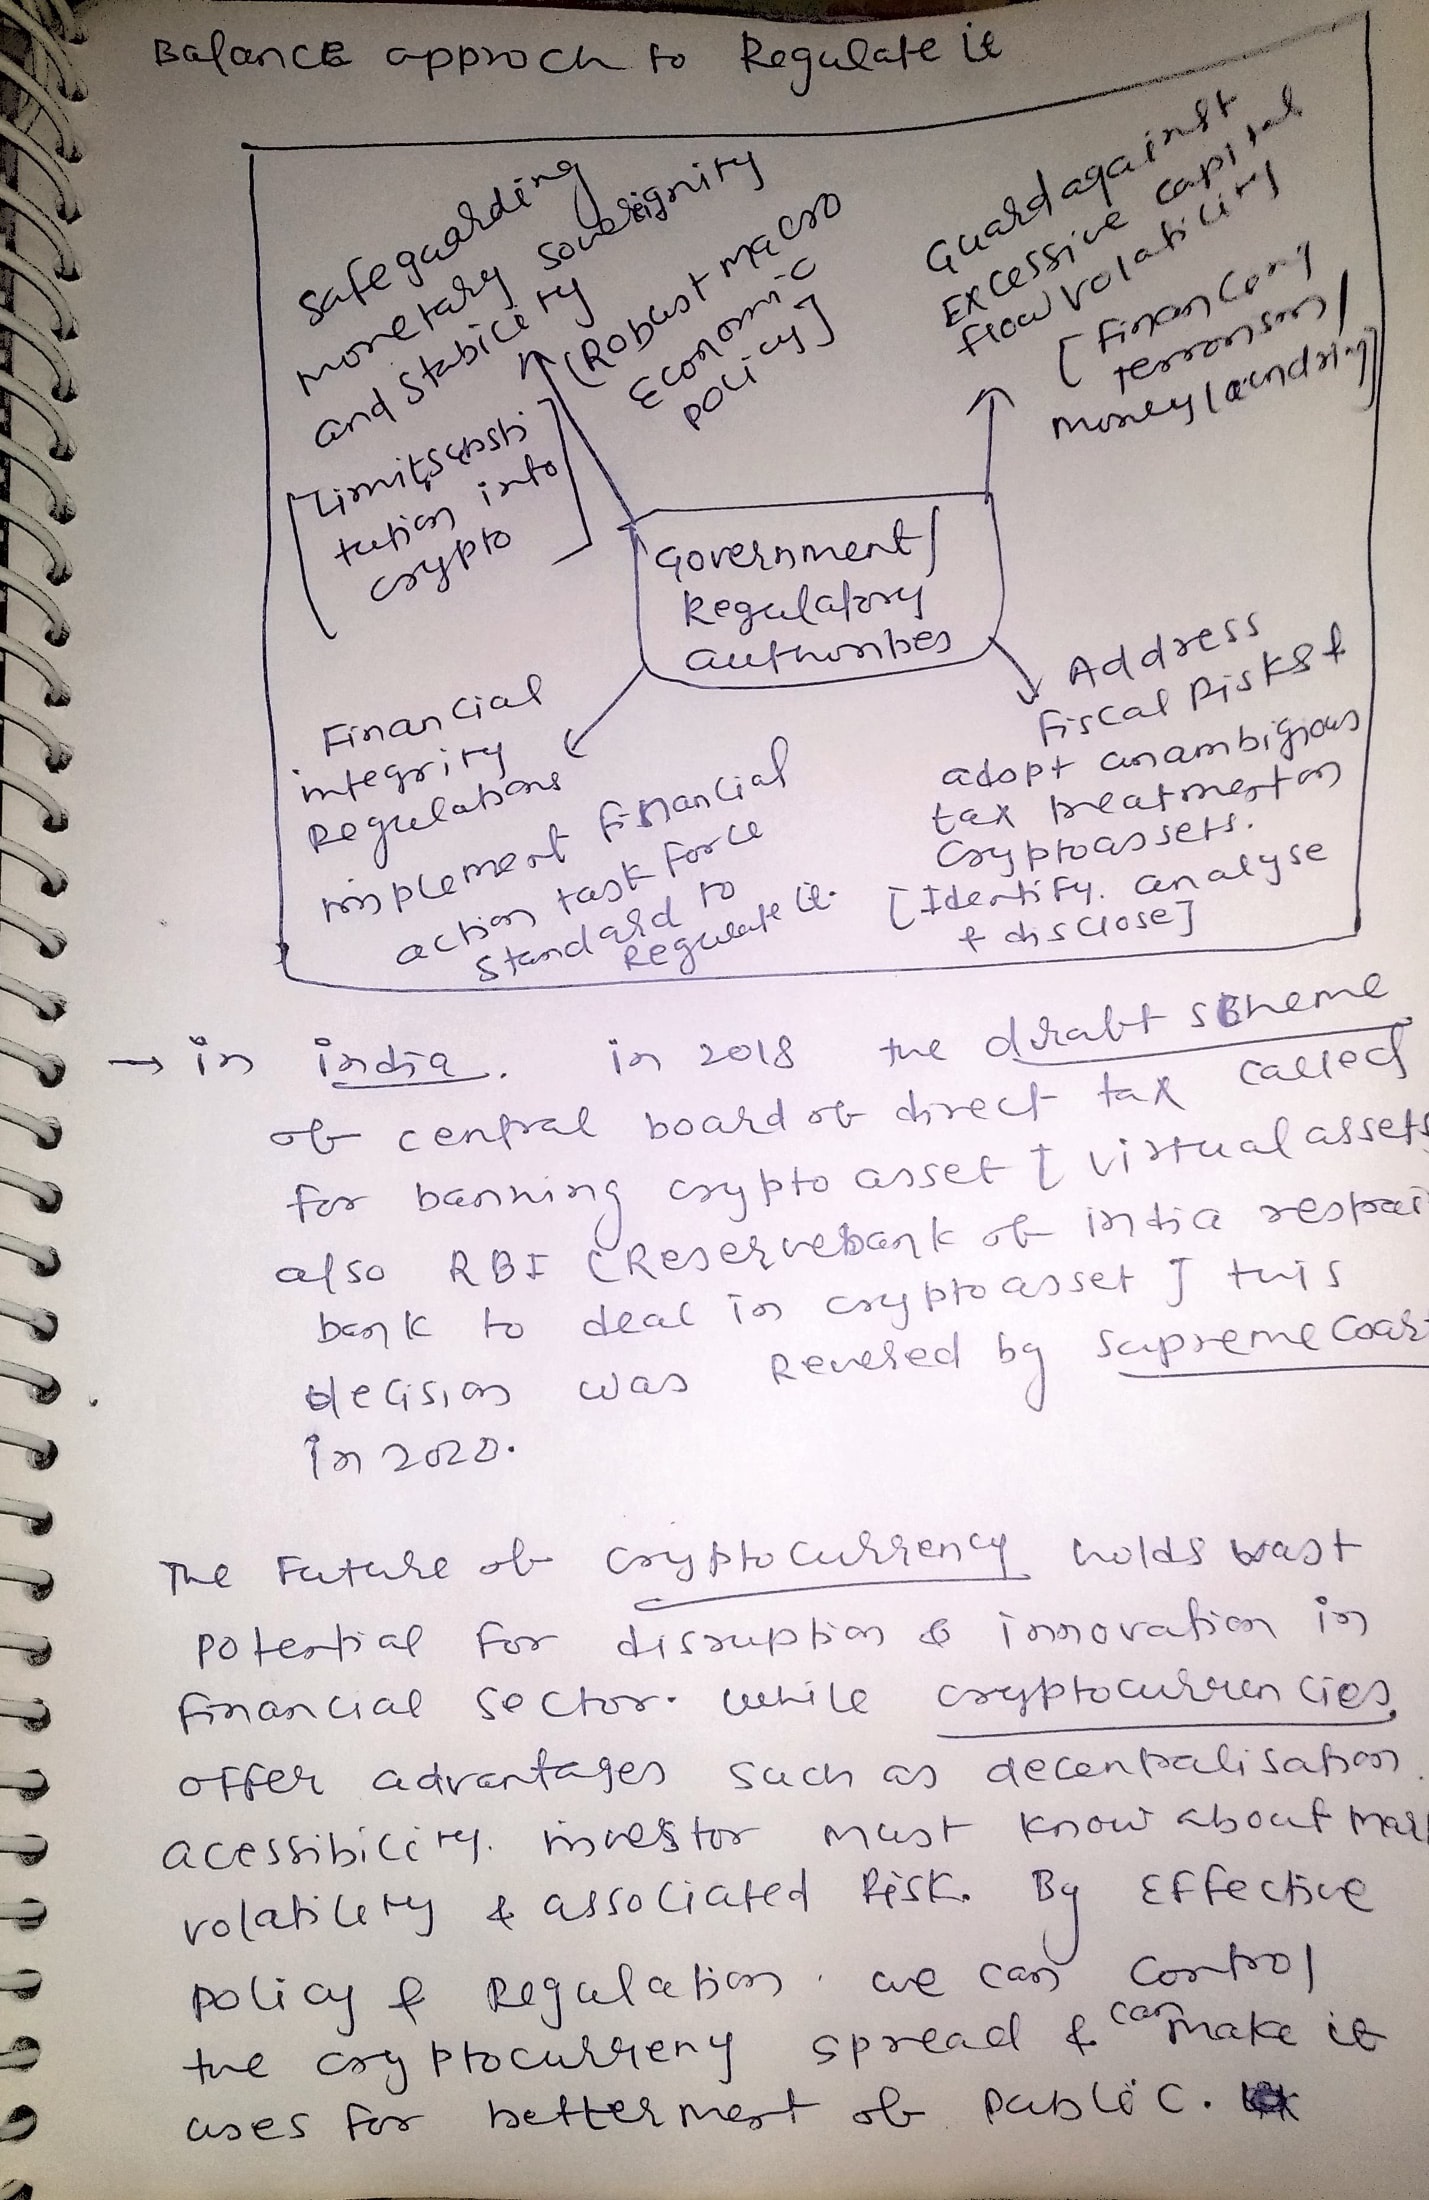 Balance approch to Regulate it
safeguarding
monetary sovereignity
and stability
[Robust macro
Economic
policy]
[Limit substi
tution into
crypto]
Guard against
Excessive capital
flow volatility
[Financing
terrorism/
money laundring]
Government/
Regulatory
authorities
Financial
integrity
Regulations
implement financial
action task force
standard to
Regulate it.
Address
fiscal Risks &
adopt unambigious
tax treatment on
Cryptoassets.
[Identify. analyse
& disclose]
→ in india. in 2018 the draft scheme
of central board of direct tax called
for banning crypto asset [virtual assets
also RBI (Reservebank of india
bank to deal in crypto asset] this
decision was Revered by supreme
in 2020.
The Future of cryptocurrency holds vast
potential for disruption & innovation in
financial sector. while cryptocurrencies,
offer advantages such as decentralisation.
acessibility. investor must know about
volatility & associated Risk. By Effective
policy & Regulation. we can control
the cryptocurreny spread & can make it
uses for betterment of public.